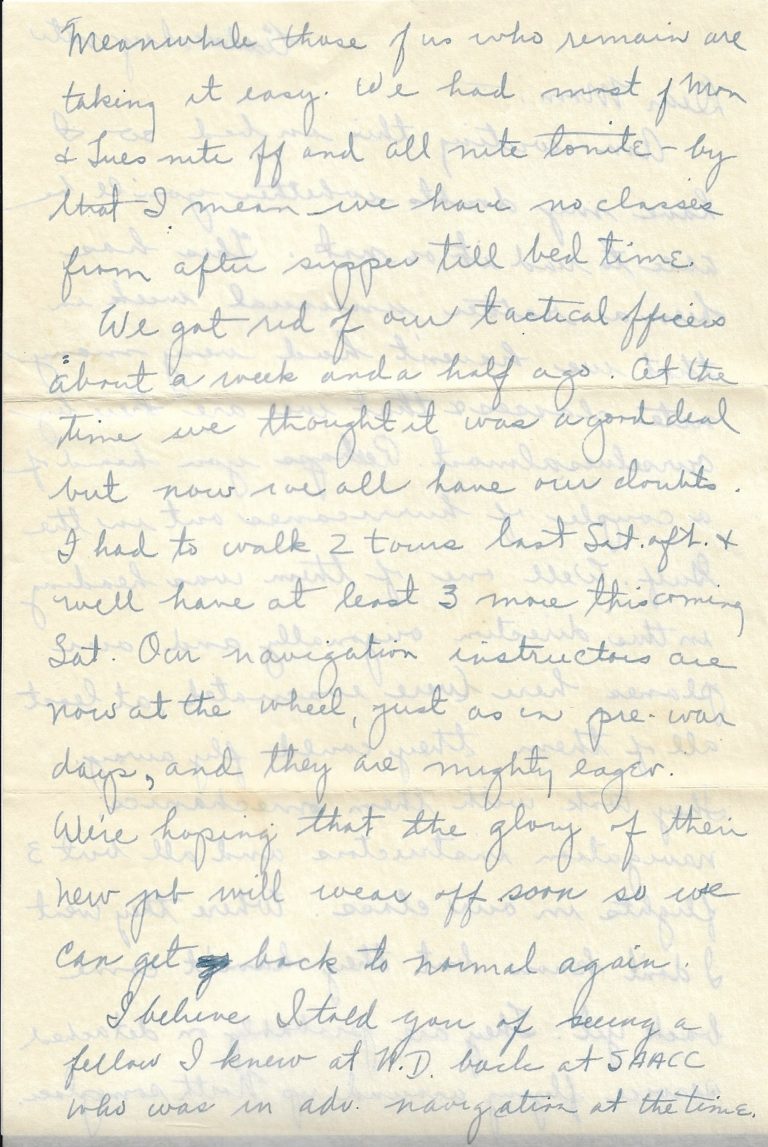 Meanwhile those of us who remain are
taking it easy. We had most of Mon
& Tues nite off and all nite tonite - by
that I mean we have no classes
from after supper till bed time.
We got rid of our tactical officers
about a week and a half ago. At the
time we thought it was a good deal
but now we all have our doubts.
I had to walk 2 tours last Sat. aft. &
will have at least 3 more this coming
Sat. Our navigation instructors are
now at the wheel, just as in pre-war
days, and they are mighty eager.
We're hoping that the glory of their
new job will wear off soon so we
can get back to normal again.
I believe I told you of seeing a
fellow I knew at N.D. back at SAACC
who was in adv. navigation at the time.